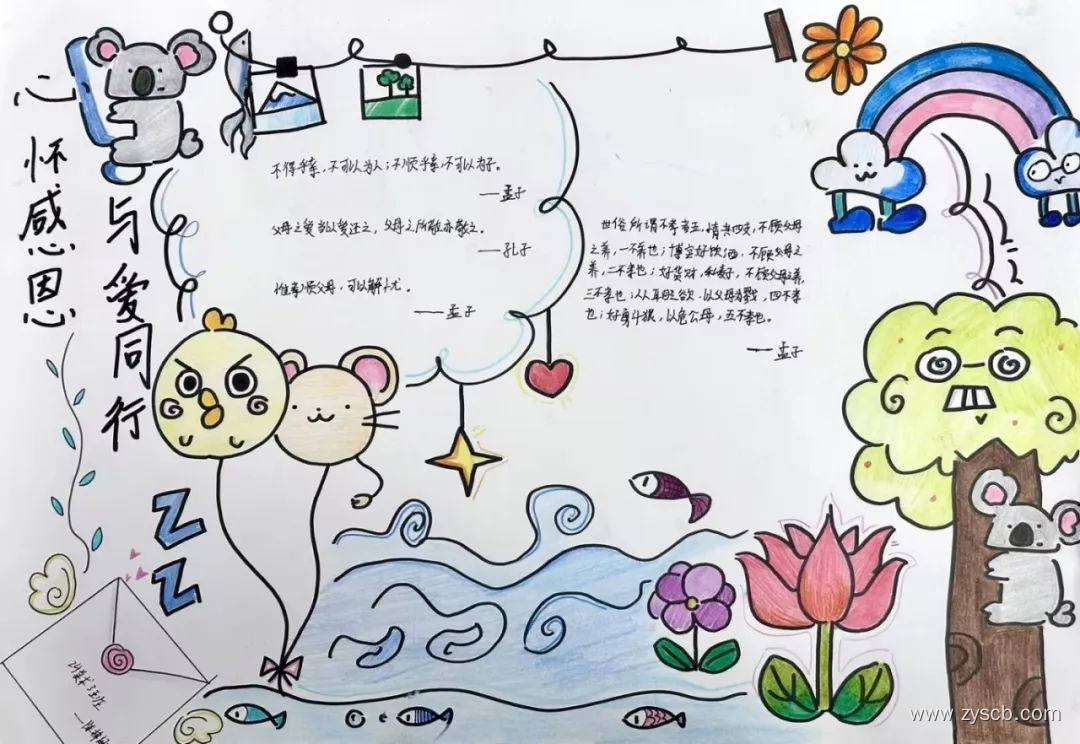 心怀感恩
与爱同行
不得乎亲，不可以为人；不顺乎亲，不可以为子。
——孟子
父母之爱当以爱还之，父母之所敬亦敬之。
——孔子
惟孝顺父母，可以解忧。
——孟子
世俗所谓不孝者五，惰其四支，不顾父母
之养，一不孝也；博弈好饮酒，不顾父母之
养，二不孝也；好货财，私妻子，不顾父母之养，
三不孝也；从耳目之欲，以父母为戮，四不孝
也；好勇斗狠，以危父母，五不孝也。
——孟子
Z
Z
www.zyscb.com